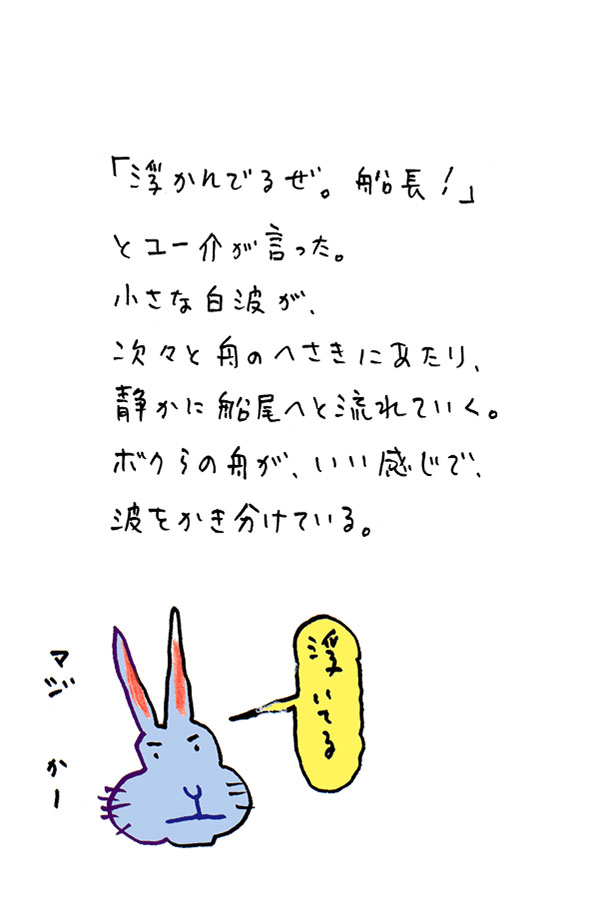 「浮かんでるぜ。船長！」
とユー介が言った。
小さな白波が、
次々と舟のへさきにあたり、
静かに船尾へと流れていく。
ボクらの舟が、いい感じで、
波をかき分けている。
浮いてる
マジ かー